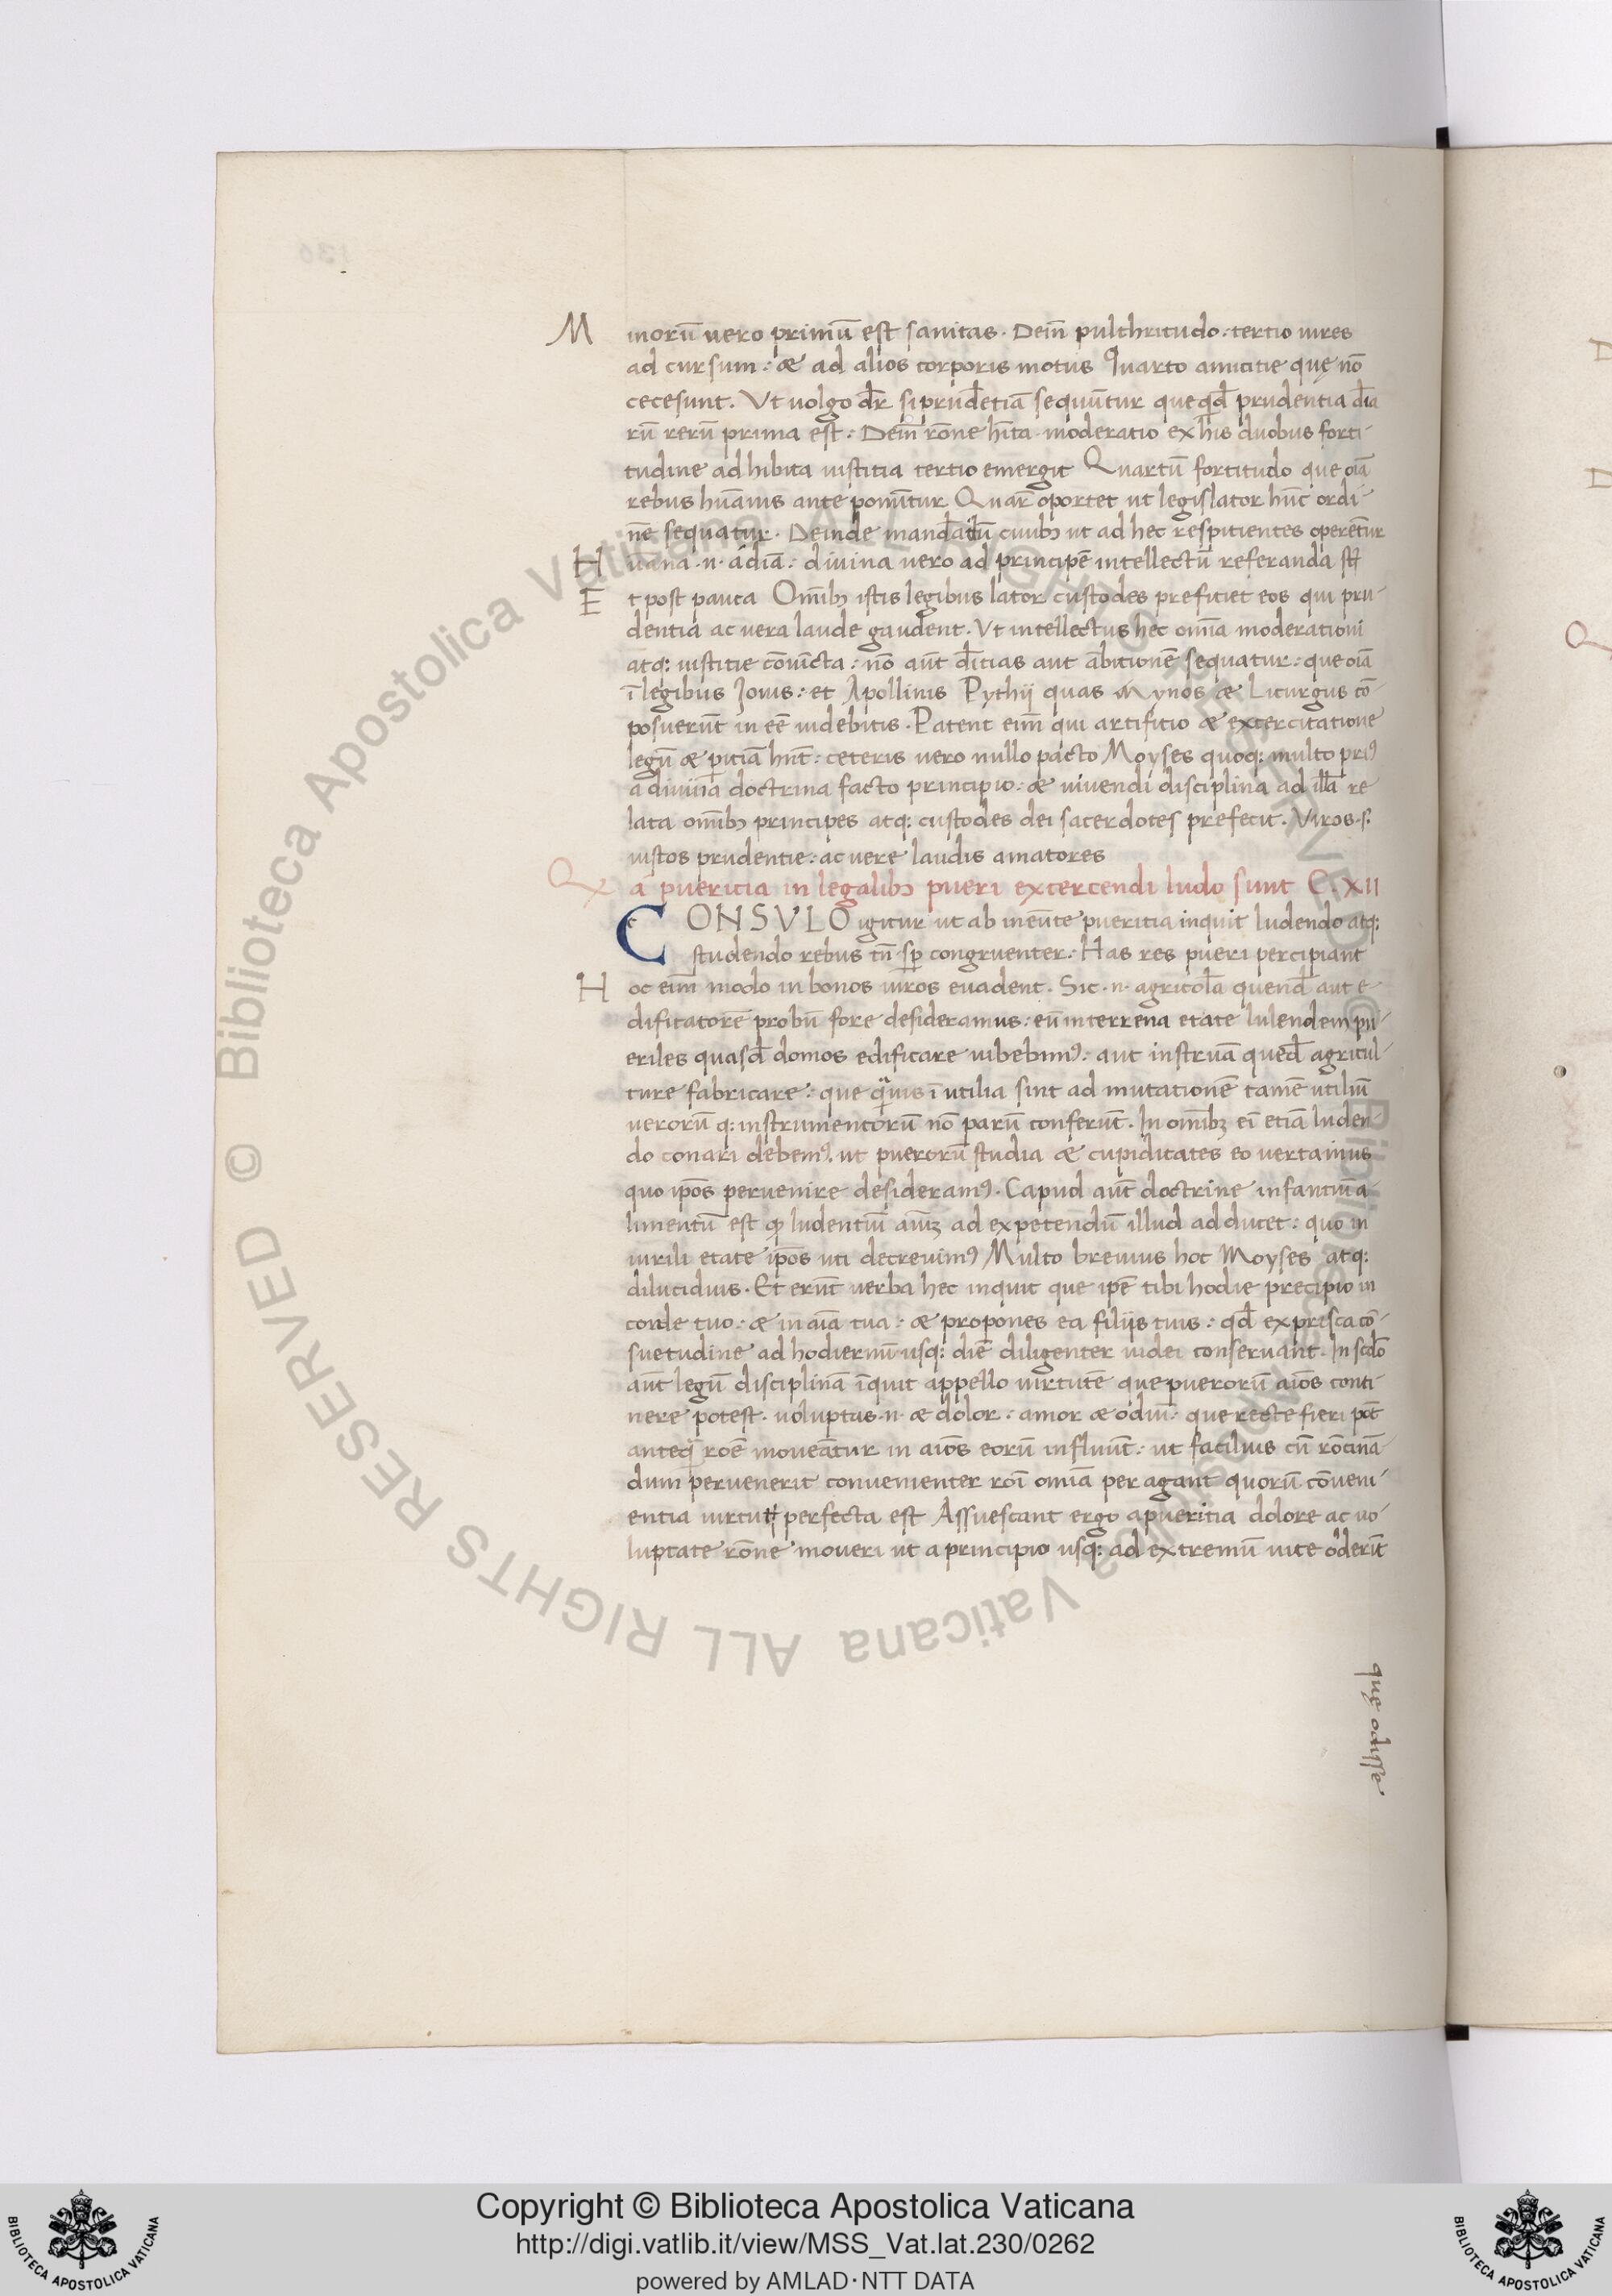 Minorū vero primū est sanitas. Dein̄ pulchritudo: tertio vires
ad cursum: & ad alios corporis motus Quarto amicitie quę nō
cecesunt. Vt volgo dr̄ si prudētiā sequūtur que qd̄ prudentia dīa
rū rerū prima est: Dein̄ rōne hīta moderatio ex his duobus forti-
tudine adhibita iustitia tertio emergit Quartū fortitudo que oīa
rebus hūanis anteponūtur Quar̄ oportet ut legislator hūc ordi-
nē sequatur. Deinde mandatū ciuibȝ ut ad hec respicientes operētur
Huana .n. ad dīa: divina vero ad principē intellectū referanda st̄
Et post pauca Omībȝ istis legibus lator custodes preficiet eos qui pru-
dentia ac vera laude gaudent. Vt intellectus hec omīa moderationi
atq: iustitie cōnūcta: nō aūt dītias aut ābitionē sequatur: que oīa
ī legibus Jovis: et Apollinis Pythij quas Mynos & Licurgus cō-
posuerūt in eē videbitis. Patent eim̄ qui artifitio & excercitatione
legū & pitiā hn̄t: ceteris vero nullo pacto Moyses quoq: multo priꝰ
a diviīa doctrina facto principio: & vivendi disciplina ad illā re
lata omībȝ principes atq: custodes dei sacerdotes prefecit. Viros .s.
iustos prudentie: ac vere laudis amatores
Q a puericia in legalibȝ pueri excercendi ludo sunt C. XII
CONSVLO igitur ut ab ineūte pueritia inquit ludendo atq:
studendo rebus tn̄ sp̄ congruenter: Has res pueri percipiant
Hoc eim̄ modo in bonos viros evadent. Sic .n. agricolā quend̄ aut e-
dificatorē probū fore desideramus: eū in terrena etate lulendem pu-
eriles quasd̄ domos edificare vibebimꝰ: aut instruā qued̄ agricul-
ture fabricare: que qͣvis ī utilia sint ad mutationē tamē utiliū
verorū q: instrumentorū nō parū conferūt. In omībȝ eī etiā luden-
do conari debemꝰ. ut puerorū studia & cupiditates eo vertamus
quo ip̄os pervenire desideramꝰ. Capud aūt doctrine infantiū a-
limentū est qȝ ludentiū aīuȝ ad expetendū illud adducet: quo in
virili etate ip̄os uti decrevimꝰ Multo brevius hoc Moyses atq:
dilucidius. Et erūt verba hec inquit que ip̄e tibi hodie precipio in
corde tuo: & in aīa tua: & propones ea filijs tuis: qd̄ ex prisca cō-
suetudine ad hodiernū usq: diē diligenter iudei conservant. In scd̄o
aūt legū disciplinā īquit appello virtutē que puerorū aīos conti-
nere potest. voluptas .n. & dolor: amor & odiū: que recte fieri pōt
anteq̄ roē moveātur in aīos eorū influūt: ut facilius cū rōcinā
dum pervenerit convenienter roī omīa peragant quorū cōveni-
entia virtus perfecta est Assuescant ergo a pueritia dolore ac vo-
luptate rōne moveri ut a principio usq: ad extremū vite oderīt
que odisse
Copyright © Biblioteca Apostolica Vaticana
http://digi.vatlib.it/view/MSS_Vat.lat.230/0262
powered by AMLAD·NTT DATA
BIBLIOTECA APOSTOLICA VATICANA
BIBLIOTECA APOSTOLICA VATICANA
© Biblioteca Apostolica Vaticana ALL RIGHTS RESERVED © Biblioteca Apostolica Vaticana ALL RIGHTS RESERVED